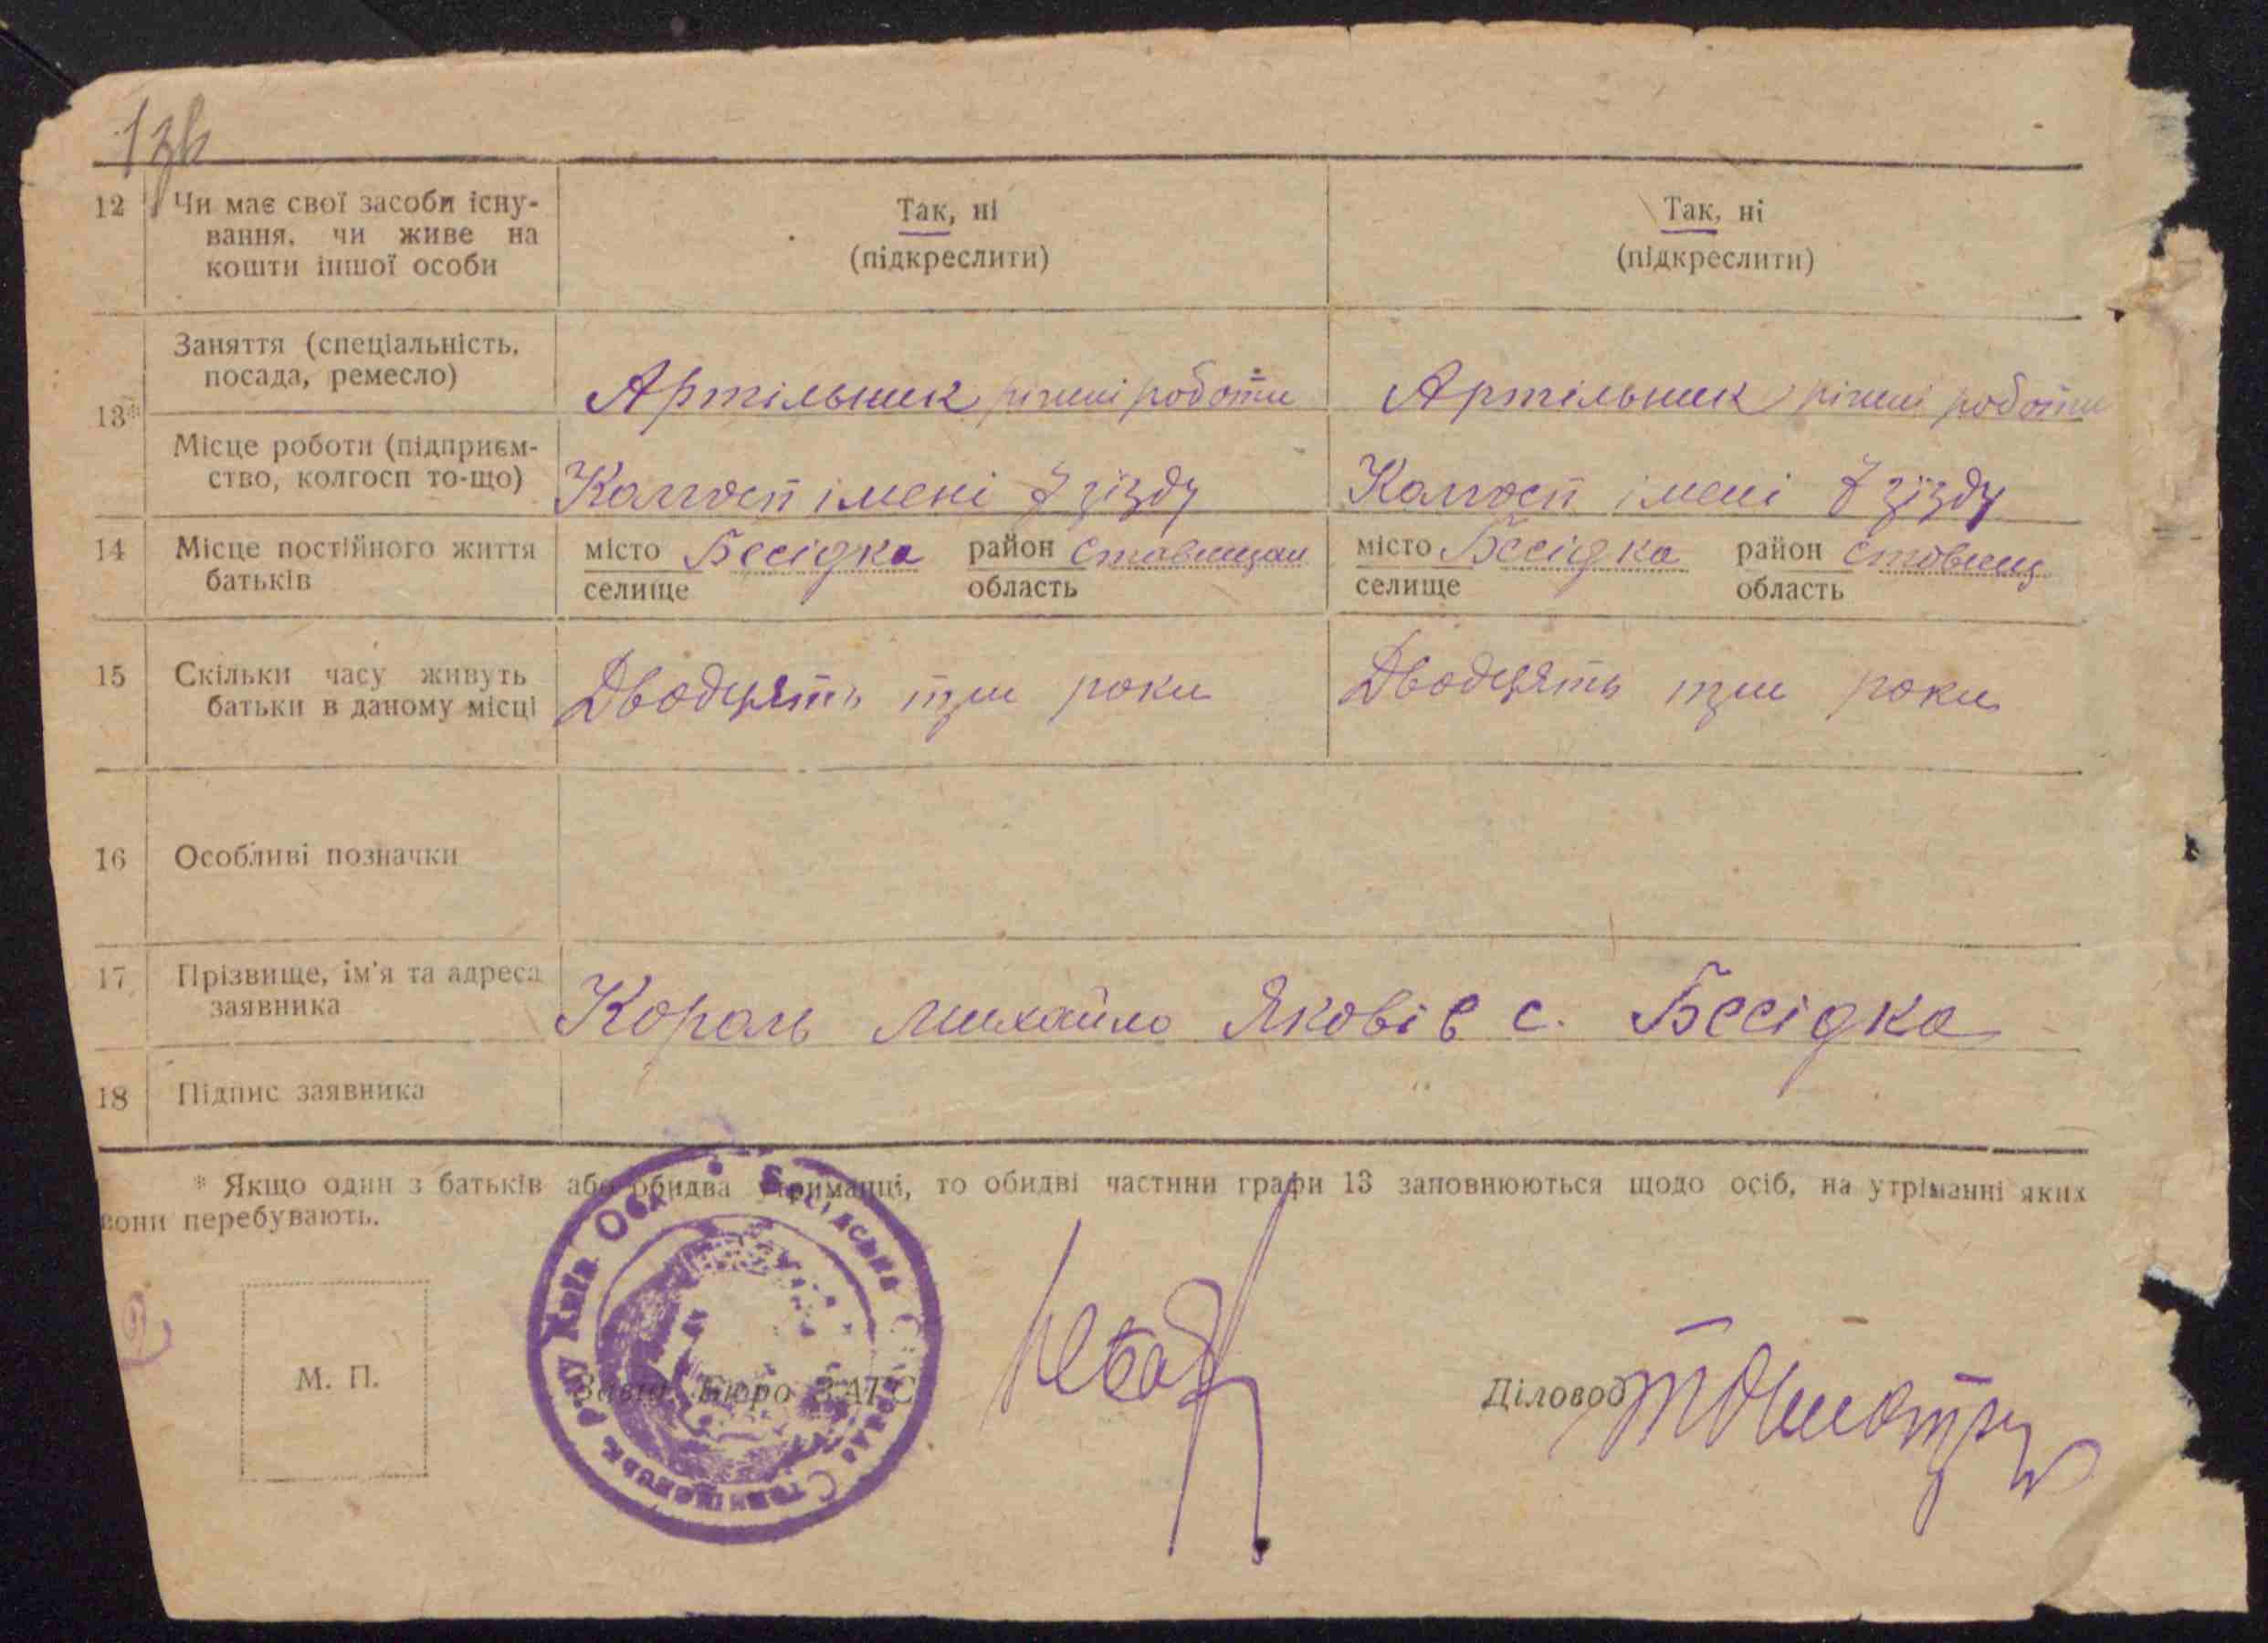 12 Чи має свої засоби існу-
вання, чи живе на
кошти іншої особи
Так, ні
(підкреслити)
Так, ні
(підкреслити)
13*
Заняття (спеціальність,
посада, ремесло)
Артільник різні роботи
Артільник різні роботи
Місце роботи (підприєм-
ство, колгосп то-що)
Колгосп імені 7 зїзду
Колгосп імені 7 зїзду
14 Місце постійного життя
батьків
місто Бесідка район Ставищан
селище область
місто Бесідка район Ставищ
селище область
15 Скільки часу живуть
батьки в даному місці
Дводцять три роки
Дводцять три роки
16 Особливі позначки
17 Прізвище, ім'я та адреса
заявника
Король Михайло Яковів с. Бесідка
18 Підпис заявника
* Якщо один з батьків або обидва утриманці, то обидві частини графи 13 заповнюються щодо осіб, на утриманні яких
вони перебувають.
М. П.
Завід. Бюро ЗАГС
Діловод